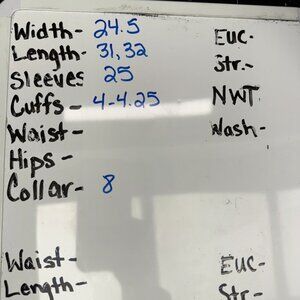 Width- 24.5
Length- 31,32
Sleeves 25
Cuffs - 4-4.25
Waist-
Hips-
Collar- 8
Euc-
Str.-
NWT
Wash-
Waist-
Length-
EUC-
Str-